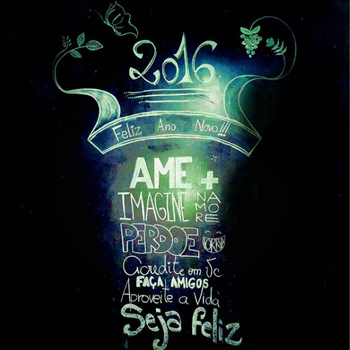 2016
Feliz Ano Novo!!!
AME +
IMAGINE NAMORE
PERDOE
Acredite em Vc
FAÇA AMIGOS
Aproveite a Vida
Seja feliz